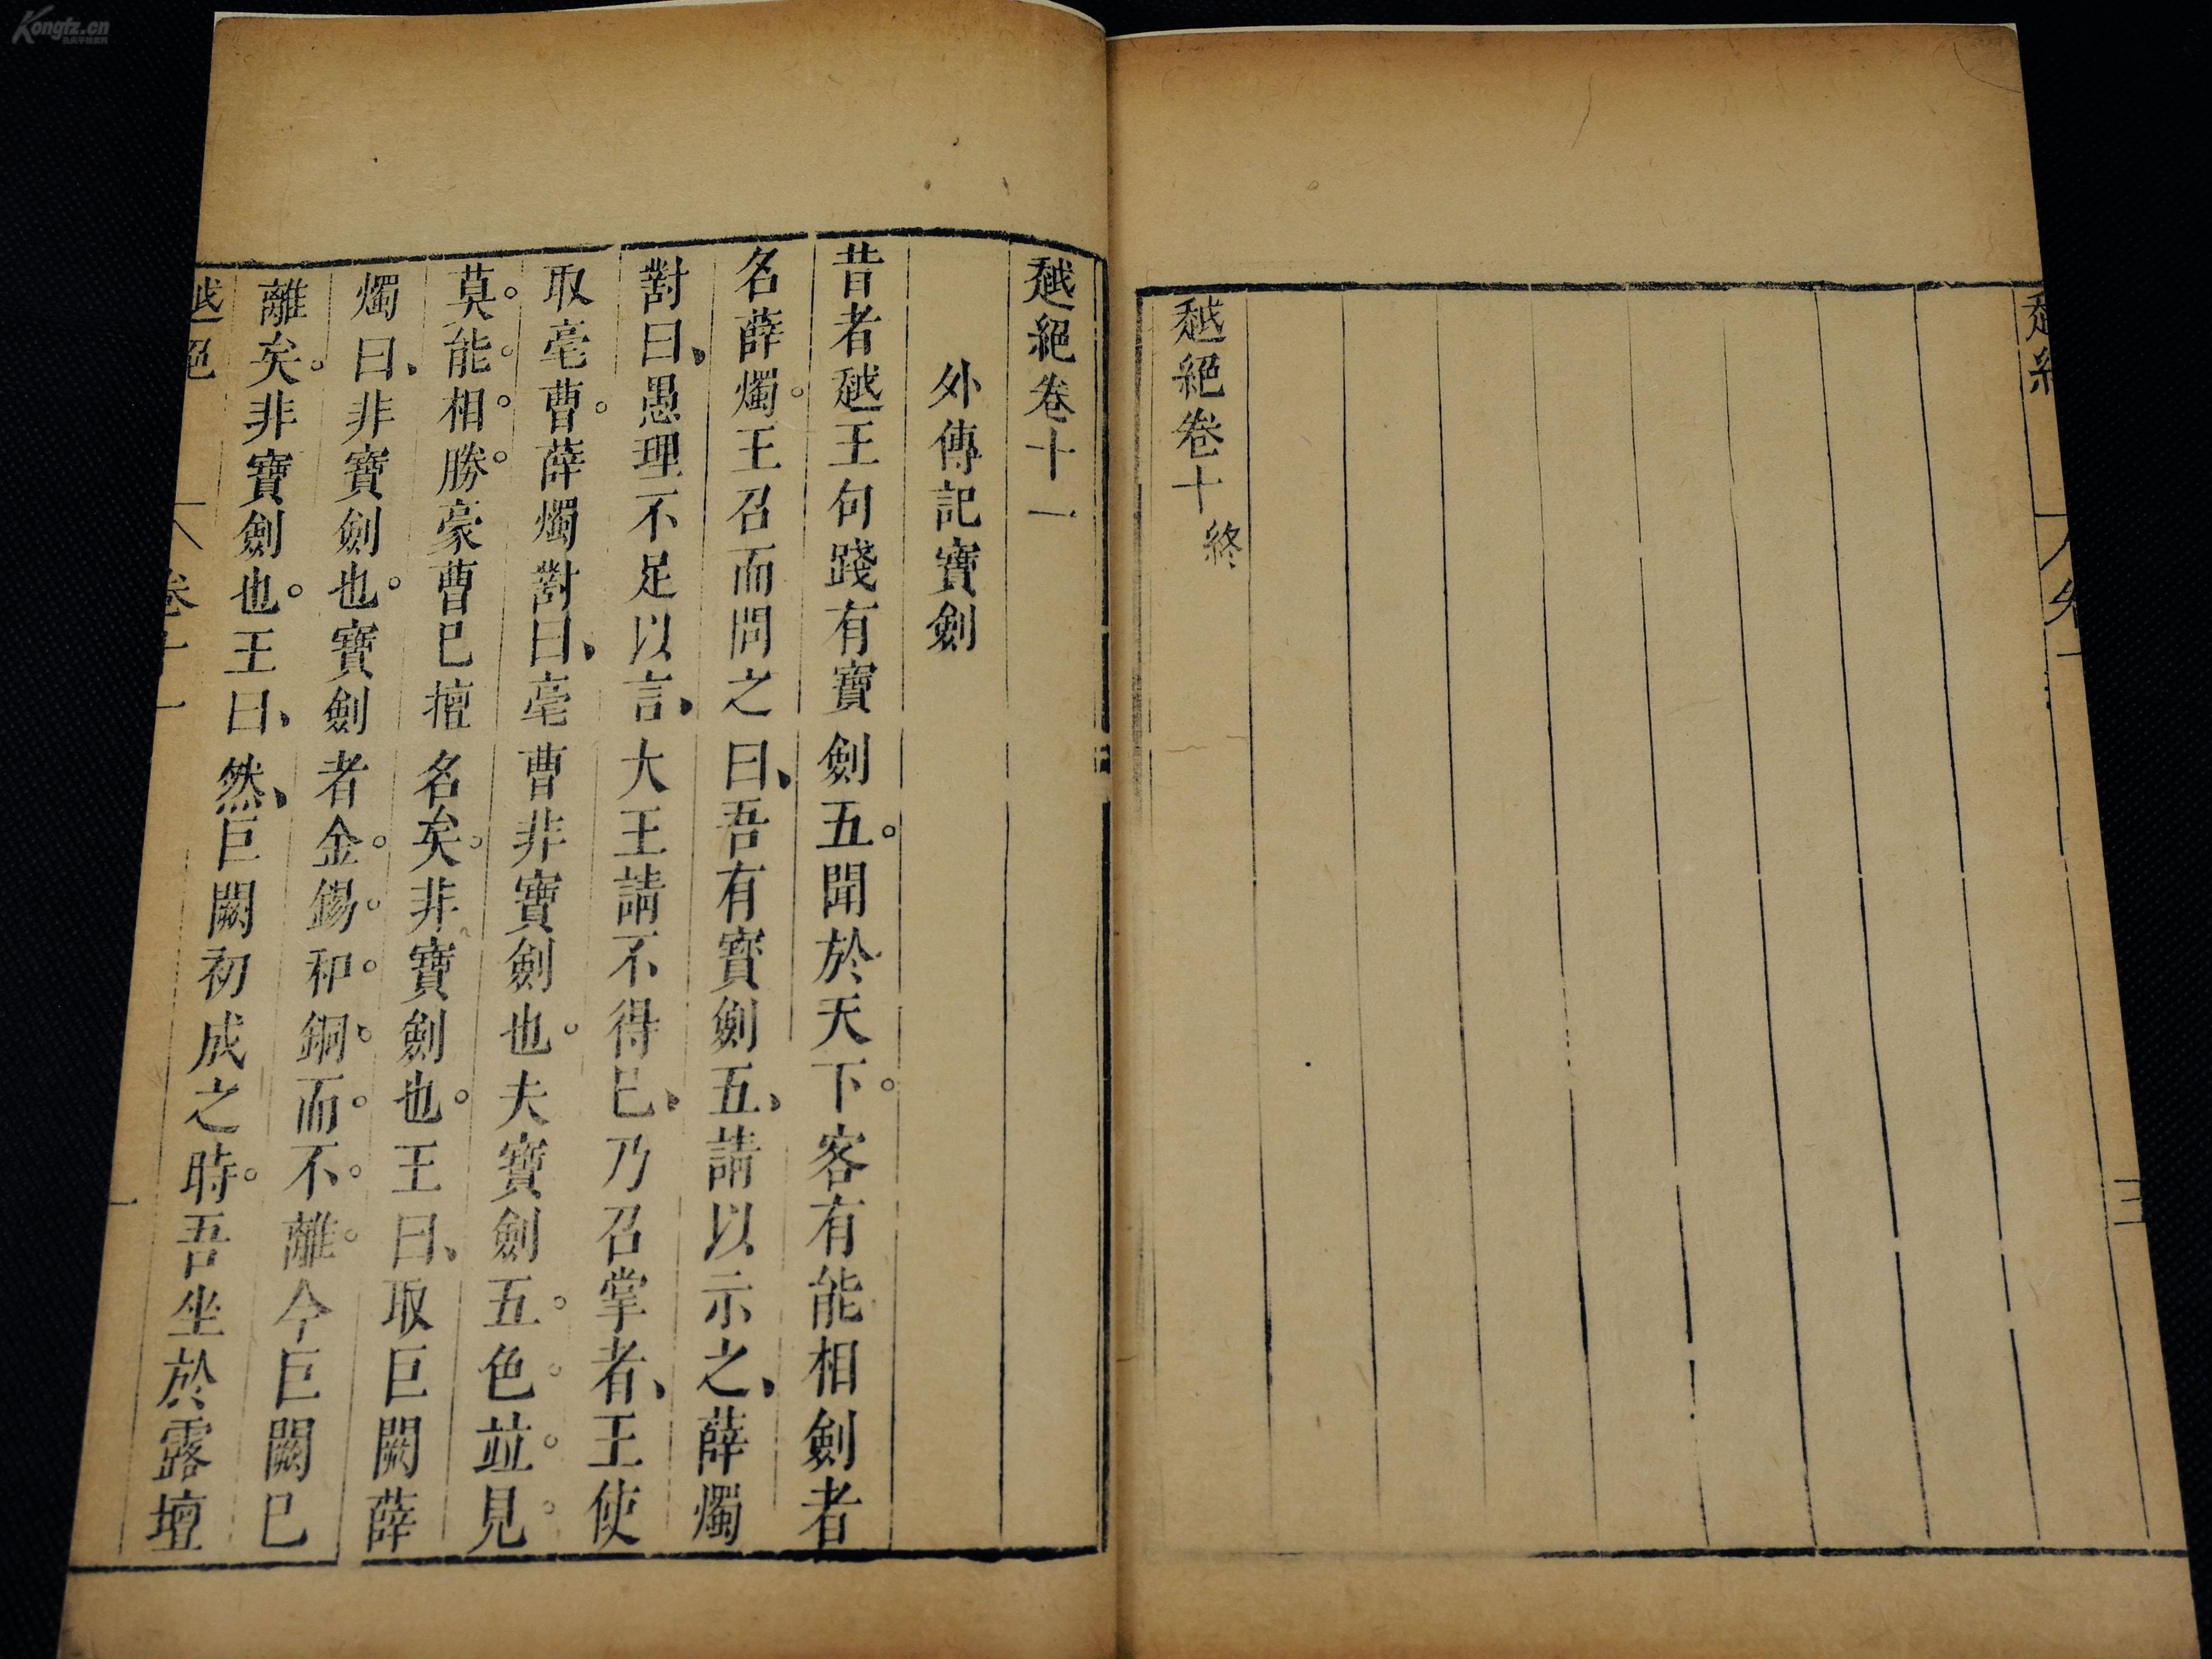 越絕
三
越絕卷十終
越絕卷十一
外傳記寶劍
昔者越王句踐有寶劍五。聞於天下。客有能相劍者
名薛燭。王召而問之曰、吾有寶劍五、請以示之、薛燭
對曰、愚理不足以言、大王請不得已、乃召掌者、王使
取毫曹。薛燭對曰、毫曹非寶劍也。夫寶劍五。色。並。見。
莫。能。相。勝。豪曹已擅名矣。非寶劍也。王曰、取巨闕薛
燭曰、非寶劍也。寶劍者金。錫。和。銅。而。不。離。今巨闕已
離矣。非寶劍也。王曰、然、巨闕初成之時。吾坐於露壇
越絕 卷十一 一
Kongfz.cn